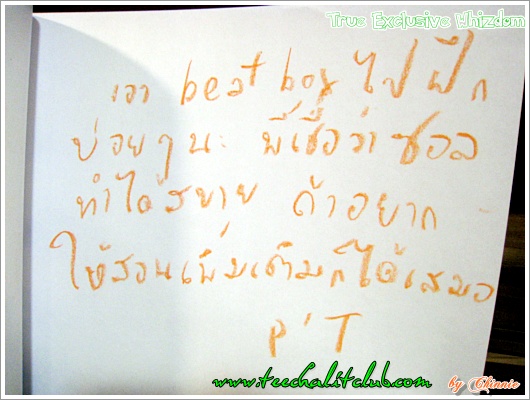 True Exclusive Whizdom
เอา beat box ไปฝึก
บ่อยๆนะ พี่เชื่อว่าซอล
ทำได้สบาย ถ้าอยาก
ให้สอนเพิ่มเติมก็ได้เสมอ
P'T
www.teechalitclub.com
by Chinnie